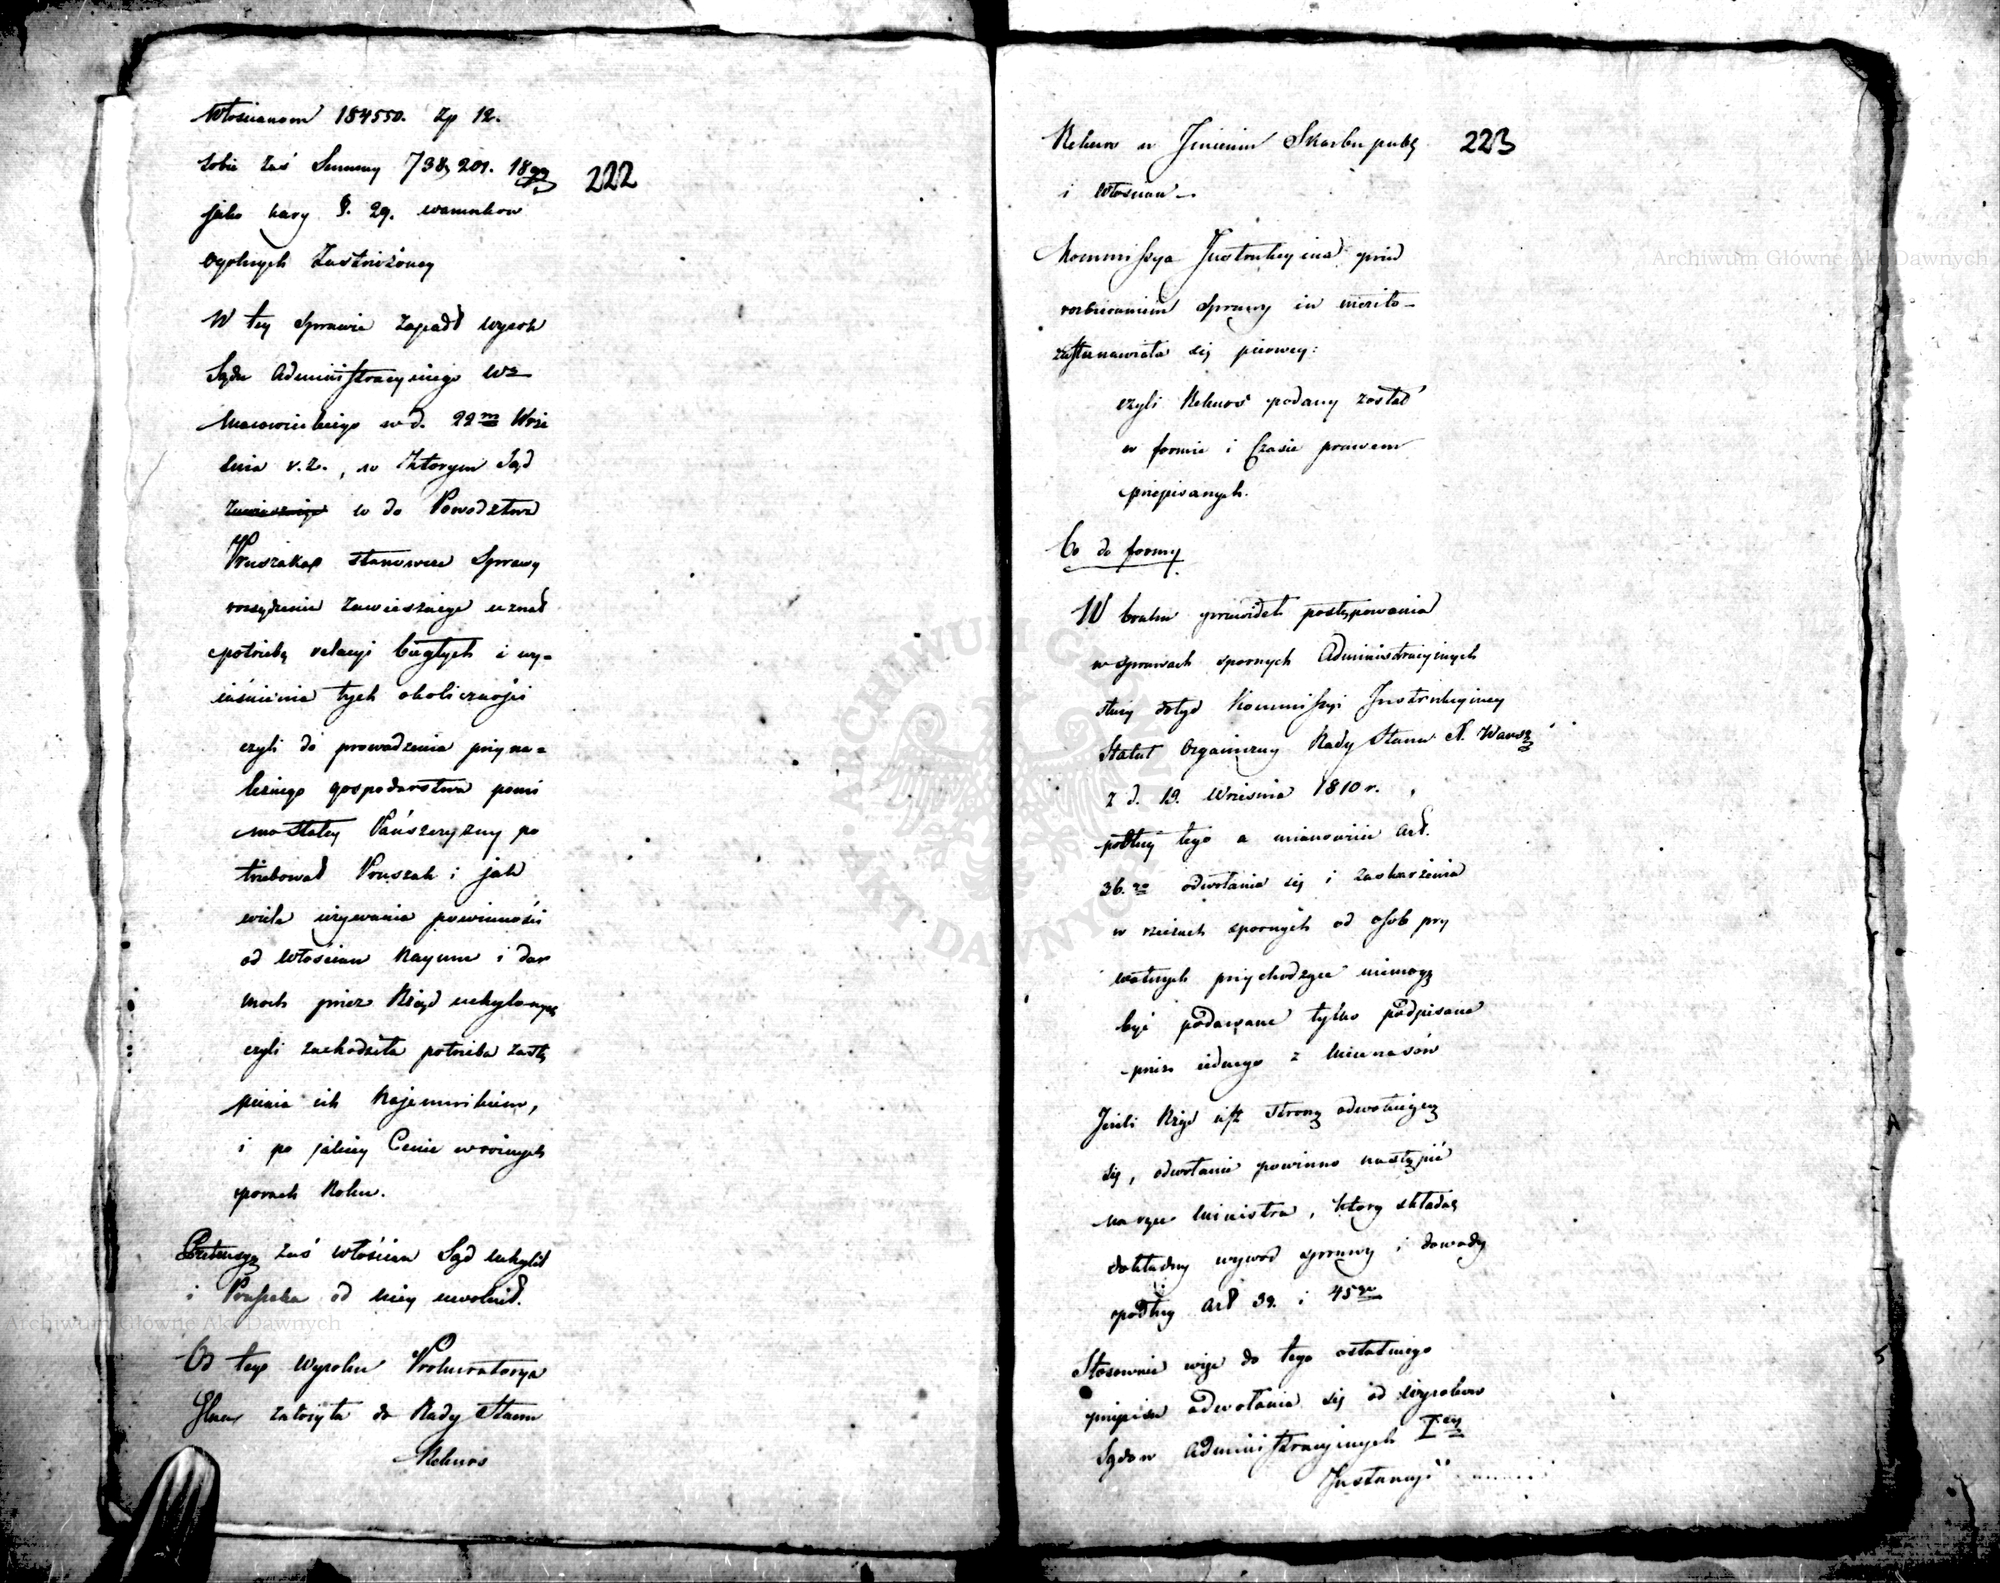 Włościanom 184550. Zp 12.
sobie zaś Summy 738,201. 18 gg
222
jako kary §. 29. warunkow
Ogolnych Zastrzeżoney
W tey sprawie zapadł wyrok
Sądu Administracyinego Wa
Mazowieckiego w d. 22m Wrze
śnia r. z., w Ktorym Sąd
w do Powodztwa
Pruszaka stanowcze Sprawy
rozsądzenie zawieszaiąc uznał
potrzebę relacyi biegłych i wy-
iaśnienia tych okoliczności
czyli do prowadzenia przyna=
leżnego gospodarstwa pomi
mo Stałey Pańszczyzny po
trzebował Pruszak i jak
wiele używania powinności
od Włościan Najmu i dar
moch przez Rząd uchylonych
czyli zachodziła potrzeba zastą
pienia ich Najemnikiem,
i po jakiey Cenie w rożnych
porach Roku.
Pretensyą zaś włościan Sąd uchylił
i Pruszaka od niey uwolnił.
Od tego Wyroku Prokuratorya
Glna założyła do Rady Stanu
Rekurs
Rekurs w Jmieniu Skarbu publ 223
i Włościan -
Kommissya Instrukcyina przed
rozbieraniem sprawy in merito -
zastanawiała się pierwey:
czyli Rekurs podany został
w formie i Czasie prawem
przepisanych.
Co do formy
W braku prawideł postępowania
w sprawach spornych Administracyinych
służy dotąd Kommissyi Instrukcyiney
Statut Organiczny Rady Stanu X. Warsz
z d. 19. Września 1810 r.
podług tego a mianowicie Art.
36.go odwołania się i zaskarżenia
w rzeczach spornych od osob pry
watnych przychodzące niemogą
być podawane tylko podpisane
przez iednego z Mecenasów
Jeżeli Rząd iest Stroną odwołuiącą
się, odwołanie powinno nastąpić
na ręce Ministra, ktory składa
dokładny wywod sprawy i dowody
podług Art 39. i 45go
Stosownie więc do tego ostatniego
przepisu odwołania się od wyrokow
Sądow Administracyinych Iey
Instancyi
Archiwum Główne Akt Dawnych
Archiwum Główne Akt Dawnych
ARCHIWUM GŁÓWNE AKT DAWNYCH